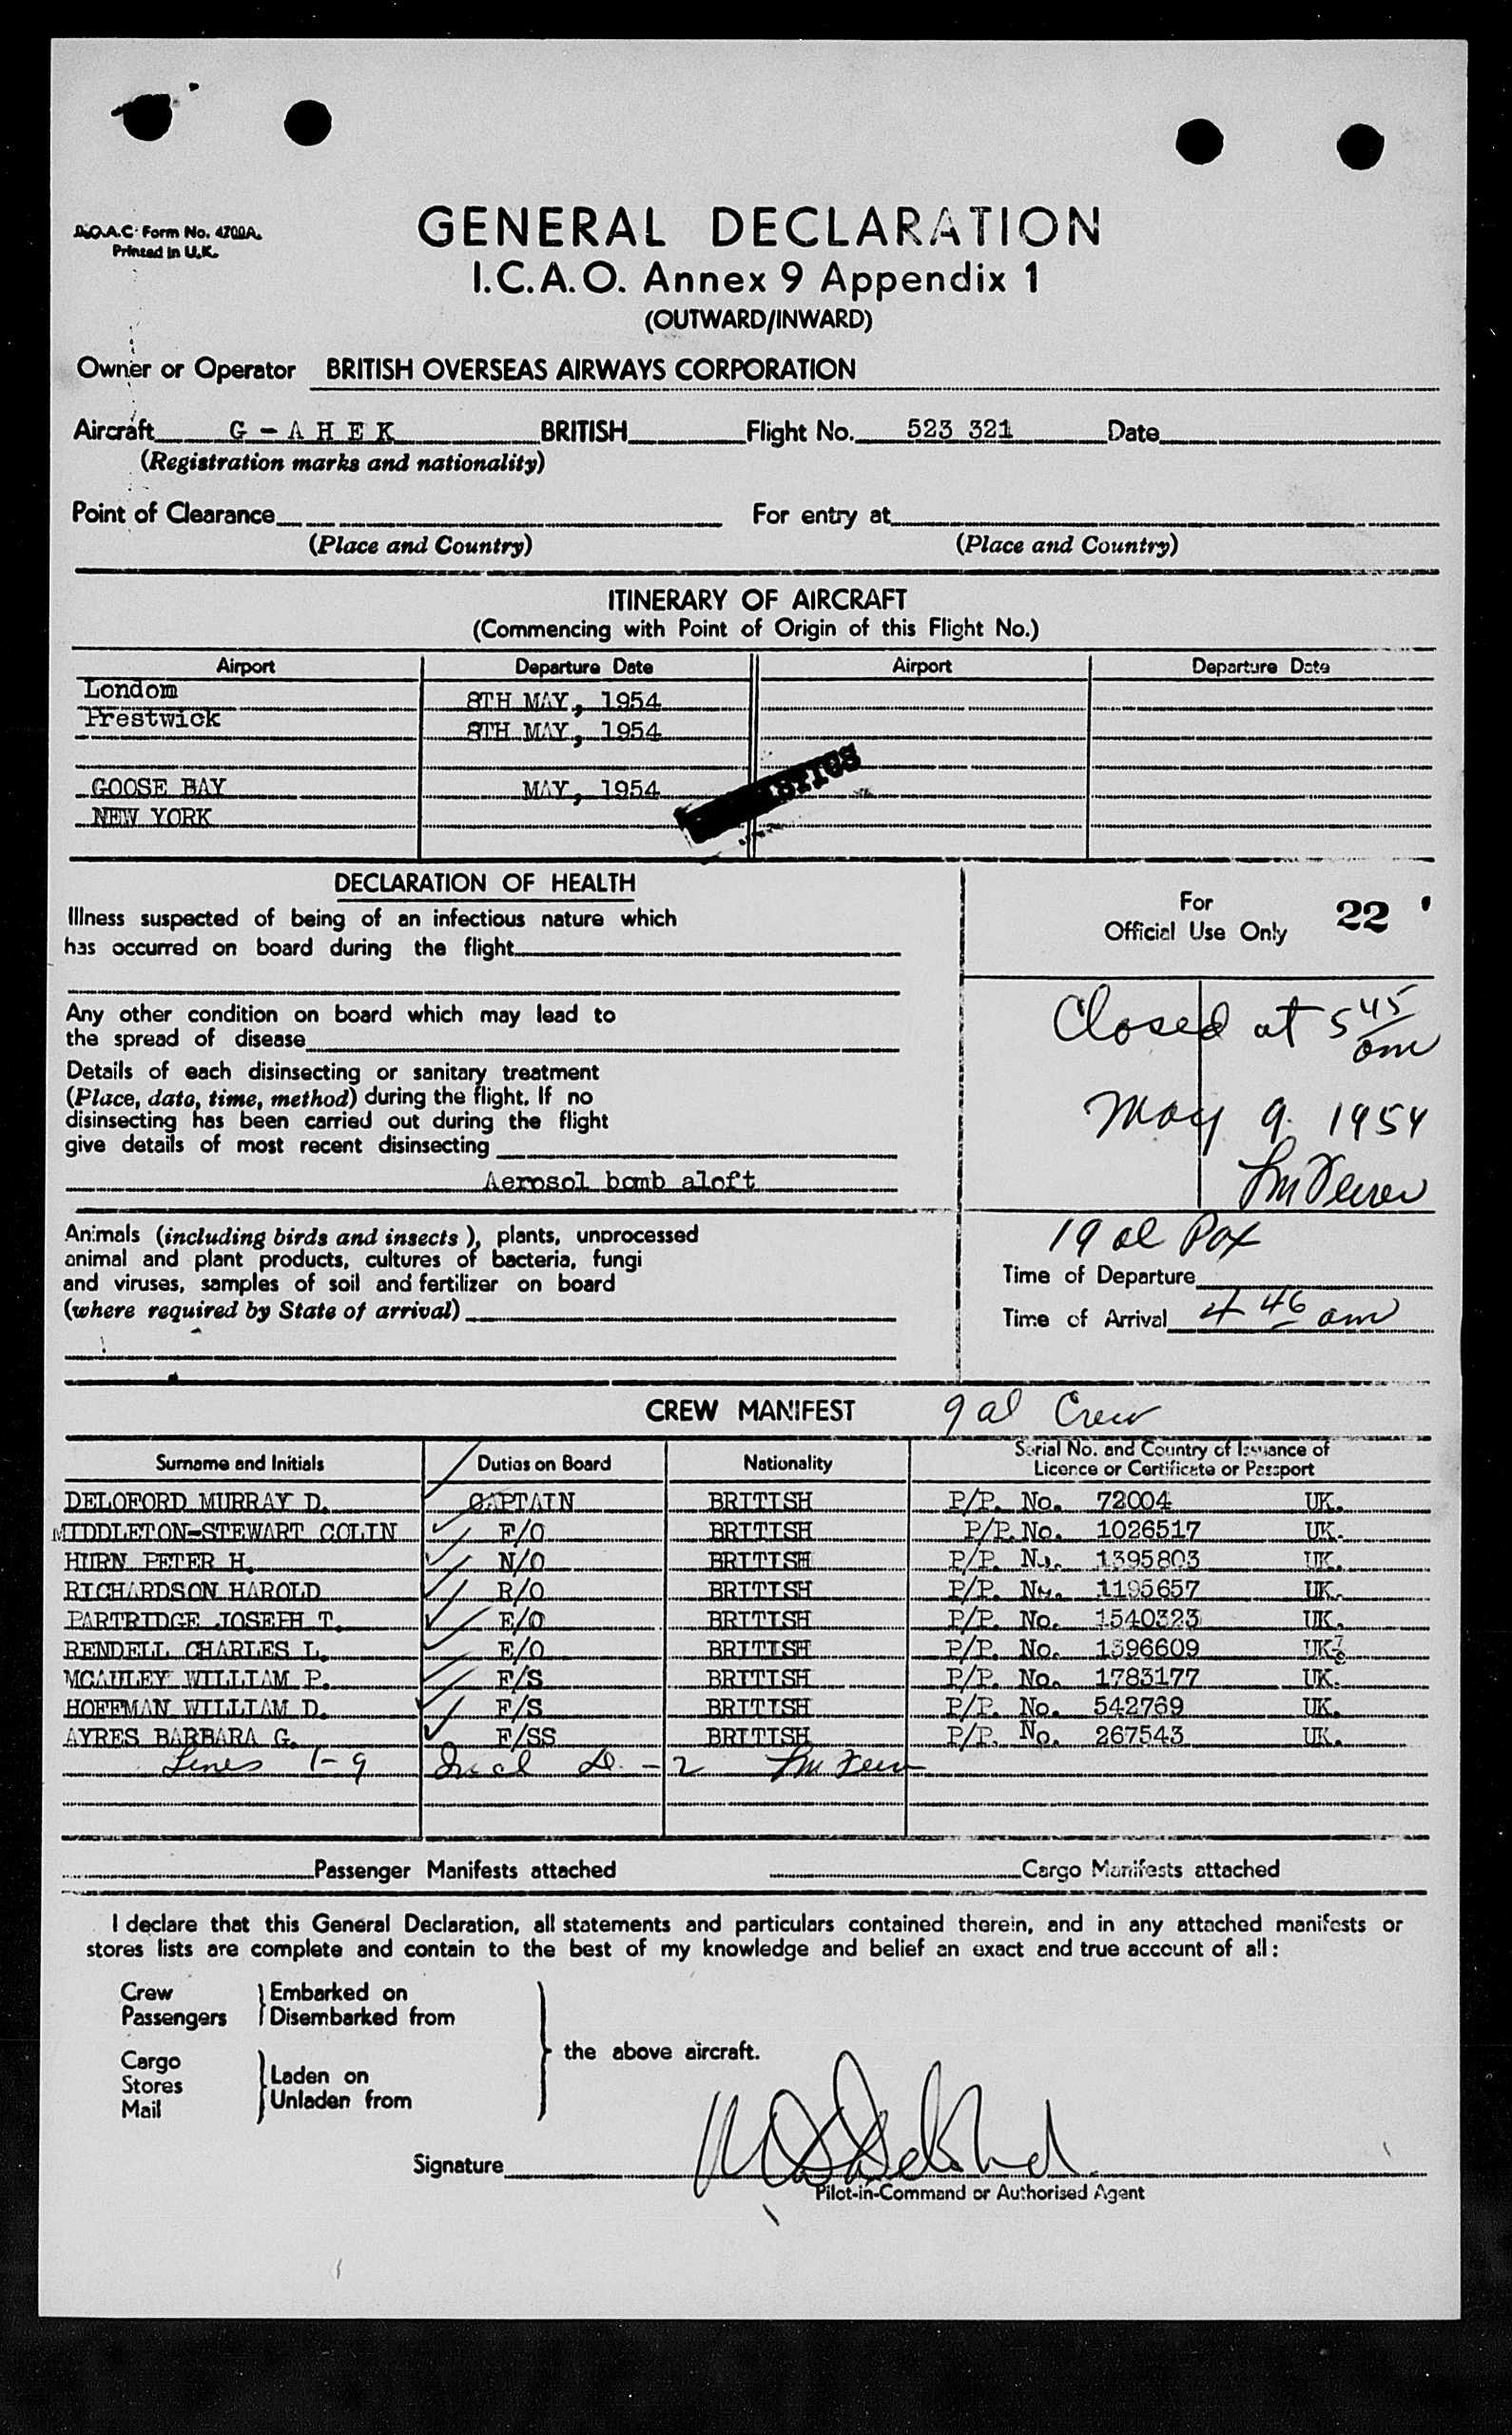 B.O.A.C. Form No. 4700A.
Printed in U.K.
GENERAL DECLARATION
I.C.A.O. Annex 9 Appendix 1
(OUTWARD/INWARD)
Owner or Operator BRITISH OVERSEAS AIRWAYS CORPORATION
Aircraft G - A H E K BRITISH Flight No. 523 321 Date
(Registration marks and nationality)
Point of Clearance For entry at
(Place and Country) (Place and Country)
ITINERARY OF AIRCRAFT
(Commencing with Point of Origin of this Flight No.)
Airport Departure Date Airport Departure Date
Londom 8TH MAY, 1954
Prestwick 8TH MAY, 1954
GOOSE BAY MAY, 1954
NEW YORK
DECLARATION OF HEALTH
Illness suspected of being of an infectious nature which
has occurred on board during the flight
Any other condition on board which may lead to
the spread of disease
Details of each disinsecting or sanitary treatment
(Place, date, time, method) during the flight. If no
disinsecting has been carried out during the flight
give details of most recent disinsecting
Aerosol bomb aloft
Animals (including birds and insects), plants, unprocessed
animal and plant products, cultures of bacteria, fungi
and viruses, samples of soil and fertilizer on board
(where required by State of arrival)
For
Official Use Only 22
Closed at 5 45 am
May 9. 1954
19 al Pax
Time of Departure
Time of Arrival 4 46 am
CREW MANIFEST 9 al Crew
Surname and Initials Duties on Board Nationality Serial No. and Country of Issuance of
Licence or Certificate or Passport
DELOFORD MURRAY D. CAPTAIN BRITISH P/P. No. 72004 UK.
MIDDLETON-STEWART COLIN F/O BRITISH P/P. No. 1026517 UK.
HURN PETER H. N/O BRITISH P/P. No. 1395803 UK.
RICHARDSON HAROLD R/O BRITISH P/P. No. 1195657 UK.
PARTRIDGE JOSEPH T. E/O BRITISH P/P. No. 1540323 UK.
RENDELL CHARLES L. E/O BRITISH P/P. No. 1396609 UK.
MCAULEY WILLIAM P. F/S BRITISH P/P. No. 1783177 UK.
HOFFMAN WILLIAM D. F/S BRITISH P/P. No. 542769 UK.
AYRES BARBARA G. F/SS BRITISH P/P. No. 267543 UK.
Lines 1-9 D-2
Passenger Manifests attached Cargo Manifests attached
I declare that this General Declaration, all statements and particulars contained therein, and in any attached manifests or
stores lists are complete and contain to the best of my knowledge and belief an exact and true account of all:
Crew Embarked on
Passengers Disembarked from
the above aircraft.
Cargo
Stores Laden on
Mail Unladen from
Signature
Pilot-in-Command or Authorised Agent